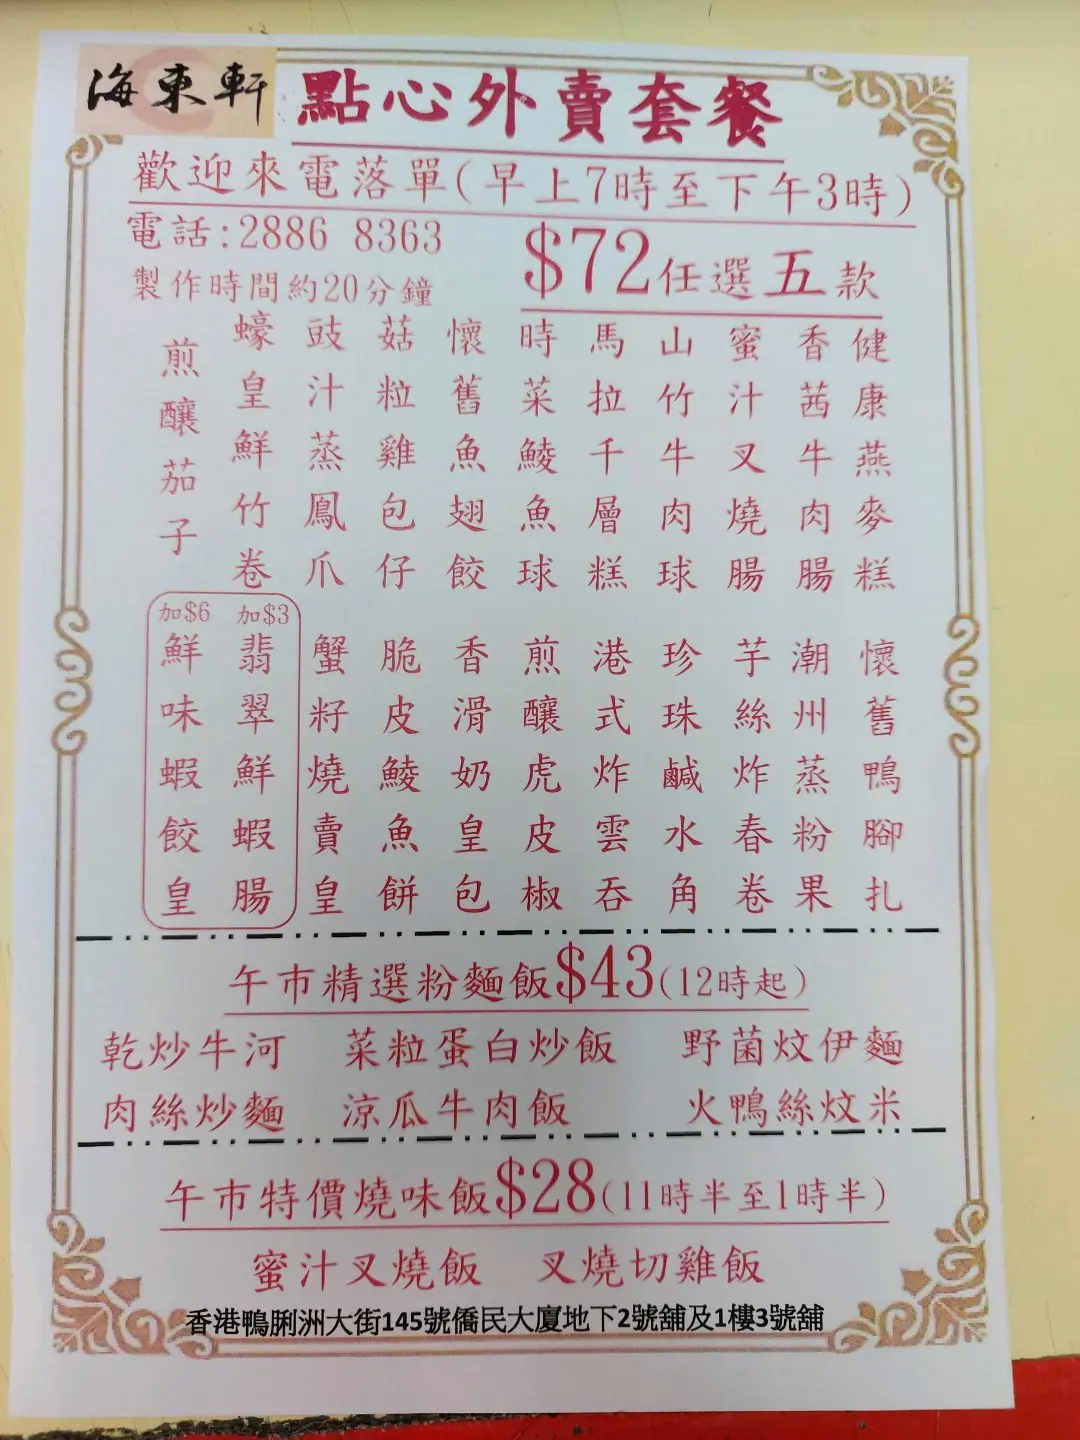 海東軒
點心外賣套餐
歡迎來電落單(早上7時至下午3時)
電話:2886 8363
製作時間約20分鐘
$72任選五款
健康燕麥糕
香茜牛肉腸
蜜汁叉燒腸
山竹牛肉球
馬拉千層糕
時菜鯪魚球
懷舊魚翅餃
菇粒雞包仔
豉汁蒸鳳爪
蠔皇鮮竹卷
煎釀茄子
懷舊鴨腳扎
潮州蒸粉果
芋絲炸春卷
珍珠鹹水角
港式炸雲吞
煎釀虎皮椒
香滑奶皇包
脆皮鯪魚餅
蟹籽燒賣皇
加$3
翡翠鮮蝦腸
加$6
鮮味蝦餃皇
午市精選粉麵飯$43(12時起)
乾炒牛河 菜粒蛋白炒飯 野菌炆伊麵
肉絲炒麵 涼瓜牛肉飯 火鴨絲炆米
午市特價燒味飯$28(11時半至1時半)
蜜汁叉燒飯 叉燒切雞飯
香港鴨脷洲大街145號僑民大廈地下2號舖及1樓3號舖